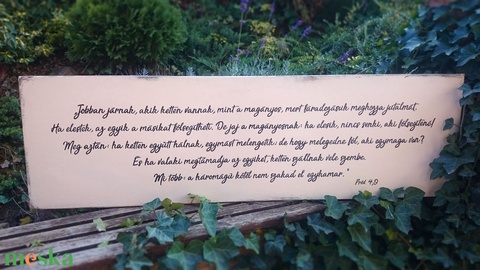 „Jobban járnak, akik ketten vannak, mint a magányos, mert fáradozásuk meghozza jutalmát.
Ha elesnek, az egyik a másikat fölsegítheti. De jaj a magányosnak: ha elesik, nincs senki, aki fölsegítené!
Meg aztán: ha ketten együtt hálnak, egymást melengetik: de hogy melegedne föl, aki egymaga van?
És ha valaki megtámadja az egyiket, ketten szállnak vele szembe.
Mi több: a háromágú kötél nem szakad el egyhamar."
Préd 4,9
meska